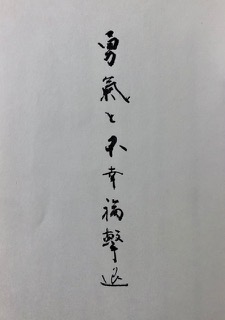 勇氣と不幸福撃退